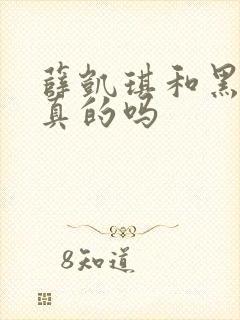 薛凯琪和黑
真的吗
8知道